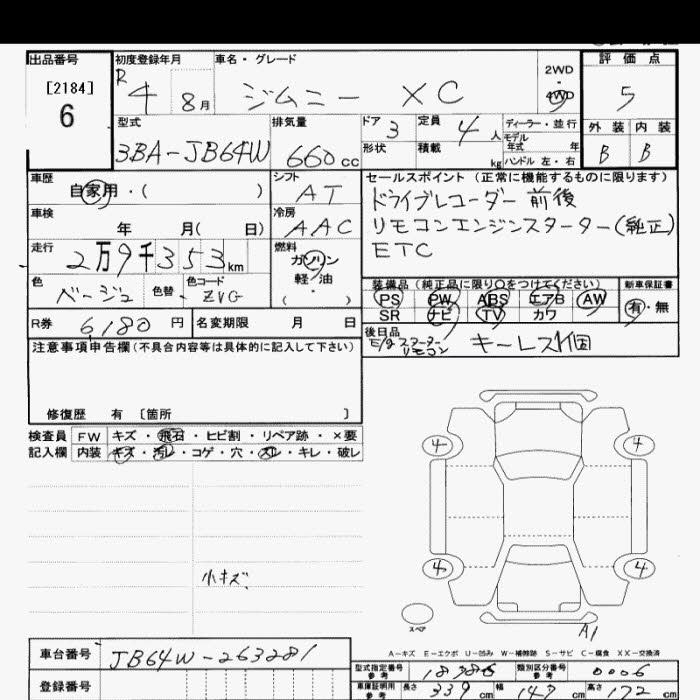 出品番号 初度登録年月 車名・グレード 評価点
[2184] R4 8月 ジムニー XC 2WD 4WD 5
6
型式 排気量 ドア 3 定員 4人 ディーラー・並行 外装 内装
3BA-JB64W 660cc 形状 積載 kg モデル年式 年 B B
ハンドル 左・右
車歴 シフト セールスポイント(正常に機能するものに限ります)
自家用・( ) AT ドライブレコーダー 前後
車検 冷房 リモコンエンジンスターター(純正)
年 月( 日) AAC ETC
走行 燃料
2万9千353km ガソリン・軽油
( )
色 色替 色コード 装備品(純正品に限り○をつけてください) 新車保証書
ベージュ ZVG PS PW ABS エアB AW 有・無
SR ナビ TV カワ
R券 6,180円 名変期限 月 日 後日品
E/gスターターリモコン キーレス1個
注意事項申告欄(不具合内容等は具体的に記入して下さい)
修復歴 有 〔箇所 〕
検査員 FW キズ・飛石・ヒビ割・リペア跡・×要
記入欄 内装 キズ・汚レ・コゲ・穴・スレ・キレ・破レ
4 4
小キズ、
4 4
スペア A1
A-キズ E-エクボ U-凹み W-補修跡 S-サビ C-腐食 XX-交換済
車台番号 JB64W-263281
型式指定番号 参考 類別区分番号 参考 0006
登録番号
車庫証明用 参考 長さ 339cm 幅 147cm 高さ 172cm